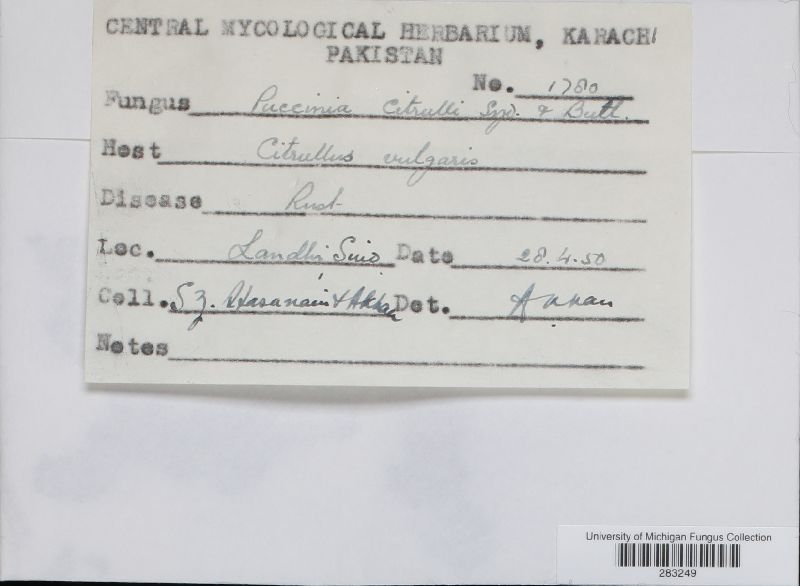 CENTRAL MYCOLOGICAL HERBARIUM, KARACHI
PAKISTAN
No. 1780
Fungus Puccinia citrulli Syd. & Butl.
Host Citrullus vulgaris
Disease Rust
Loc. Landhi Date 28.4.50
Coll. S Z. Hasanain & Det.
Notes
University of Michigan Fungus Collection
283249